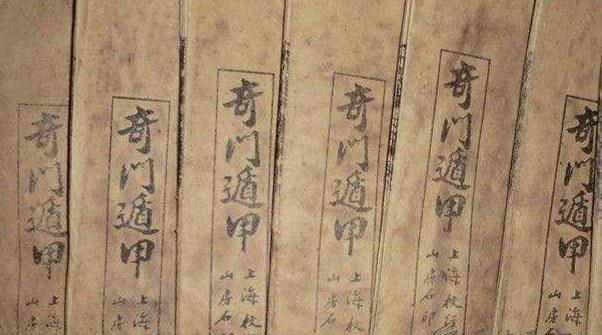 奇門遁甲
上海
山房
奇門遁甲
上海
山房
奇門遁甲
上海校
山房石印
奇門遁甲
上海校
山房石
奇門遁甲
上海校經
山房石印
奇門遁甲
上海
山房石